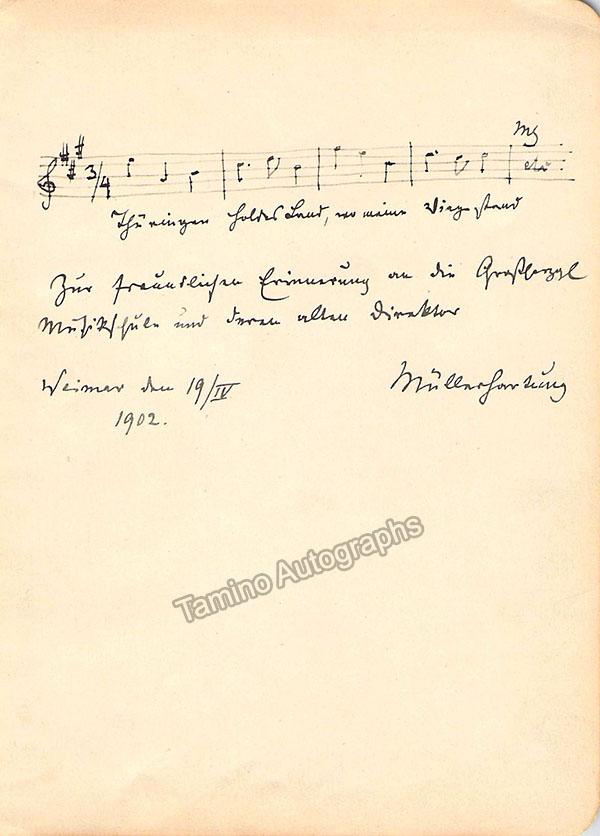 3/4
etc.
Thüringen holdes Land, wo meine Wiege stand
Zur freundlichen Erinnerung an die Großherzgl
Musikschule und deren alten Direktor
Weimar den 19/IV
1902.
Müllerhartung
Tamino Autographs